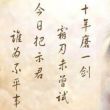 十年磨一剑
霜刃未曾试
今日把示君
谁为不平事